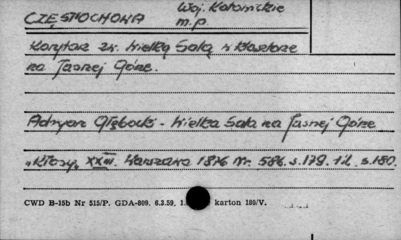 CZĘSTOCHOWA Woj. Katowickie
m.p.
Korytarz zw. Wielką Salą w Klasztorze
na Jasnej Górze.
Adryan Głębocki - Wielka Sala na Jasnej Górze
"Kłosy" XXIII. Warszawa 1876 Nr. 586. s.179. il. s.180.
CWD B-15b Nr 515/P. GDA-809. 6.3.59. karton 180/V.